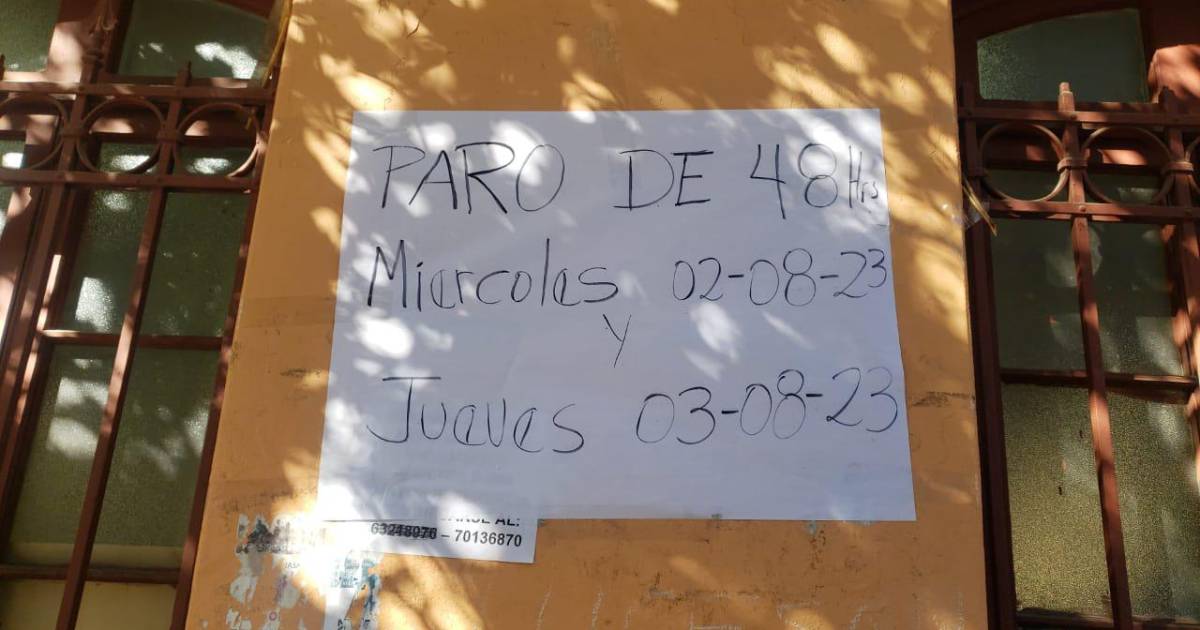 PARO DE 48 Hrs
Miercoles 02-08-23
y
Jueves 03-08-23
63218976 – 70136870